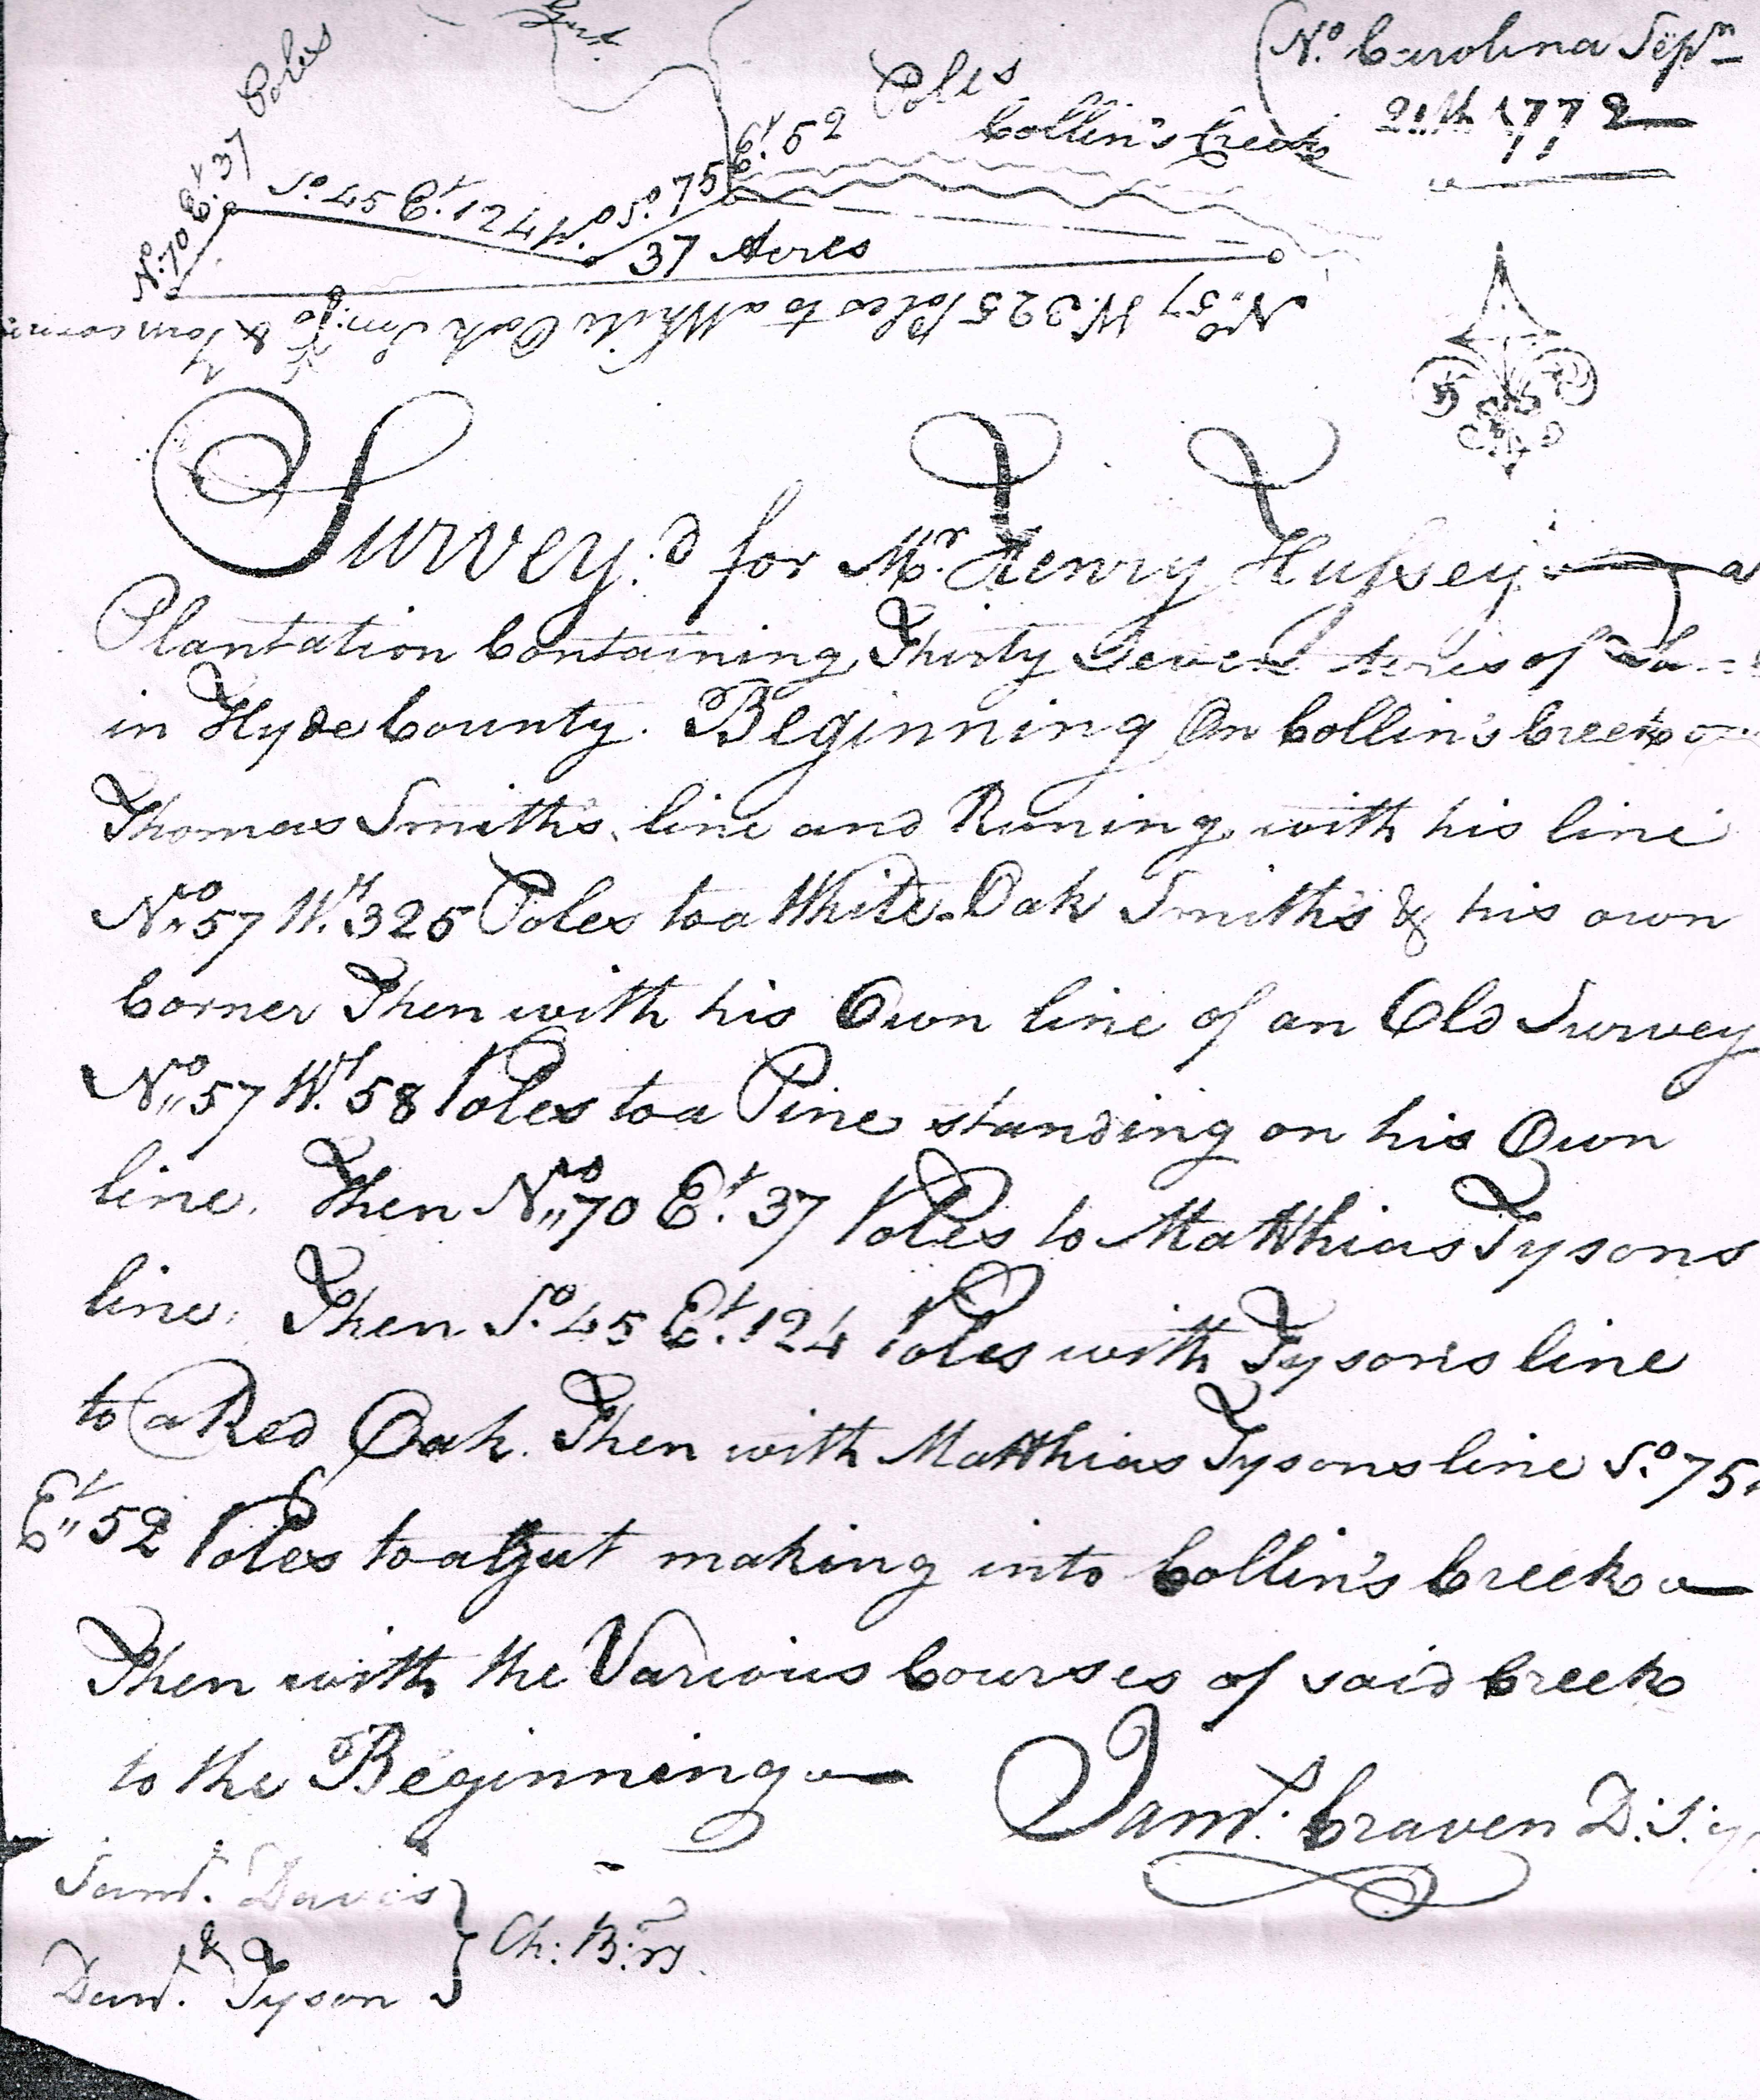 Gut
Poles
Nº. Carolina Sepᵐ
1772
Poles
Collin's Creek
Nº. 70 Eᵗ. 37
Sº. 45 Eᵗ. 124 Pº
Sº. 75 Eᵗ. 52
37 Acres
Nº. 57 W. 325 Poles to a White Oak Smiths &
Survey:d for Mr. Henry Hussey a
Plantation Containing Thirty Seven Acres of
in Hyde County. Beginning On Collin's Creek
Thomas Smith's line and Runing with his line
Nº. 57 Wᵗ. 325 Poles to a White Oak Smith's & his own
Corner Then with his Own line of an Old Survey
Nº. 57 Wᵗ. 58 Poles to a Pine standing on his Own
line. Then Nº. 70 Eᵗ. 37 Poles to Matthias Tysons
line. Then Sº. 45 Eᵗ. 124 Poles with Tysons line
to a Red Oak. Then with Matthias Tysons line Sº. 75
Eᵗ. 52 Poles to a Gut making into Collin's Creek
Then with the Various Courses of said Creek
to the Beginning
Samˡ. Craven D: S:
Samˡ. Davis
&
Danˡ. Tyson
Ch: B:rs